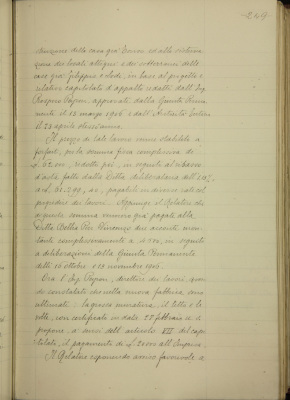 249
struzione della casa già Tonini ed alla sistema-
zione dei locali attigui e dei sotterranei della
casa già Filippini e Lodi, in base al progetto e
relativo capitolato d'appalto redatti dall'Ing.
Pagani, approvati dalla Giunta Perma-
nente il 12 marzo 1906 e dall'Autorità tutoria
il 23 aprile stess'anno.
Il prezzo di tale lavoro venne stabilito a
forfait, per la somma fissa complessiva di
£ 62.000, ridotte poi, in seguito al ribasso
d'asta fatto dalla Ditta deliberataria
a £. 61.299,40, pagabile in diverse rate col
progredire dei lavori. Aggiunge il Relatore che
a questa somma vennero già pagati alla
Ditta Bella Pio Vincenzo due acconti mon-
tanti complessivamente a in seguito
a deliberazioni della Giunta Permanente
delli 16 ottobre e 29 novembre 1906.
Ora l'Ing. Pagani, direttore dei lavori, aven-
do constatato che nella nuova fabbrica, sono
ultimati: la grossa muratura, il tetto e le
volte, con certificato in data 28 febbraio u. s.
propone, a' sensi dell'articolo VII del capi-
tolato, il pagamento di all'Impresa.
Il Relatore esprimendo avviso favorevole a